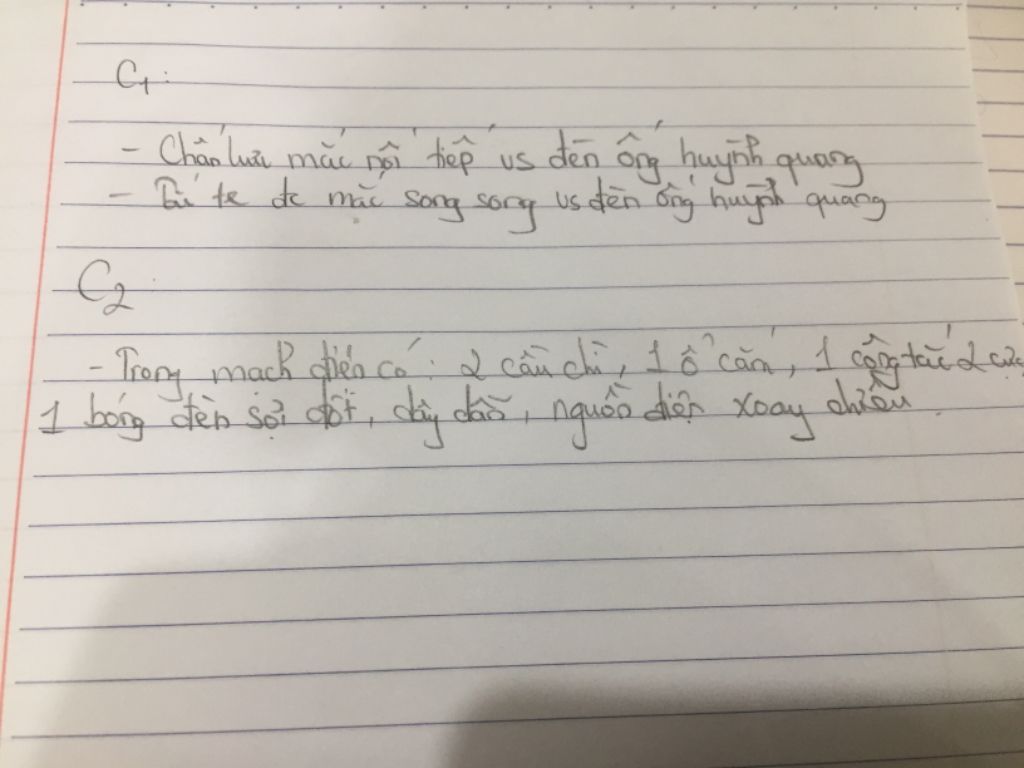 C1:
- Chấn lưu mắc nối tiếp vs đèn ống huỳnh quang
- Tắc te đc mắc song song vs đèn ống huỳnh quang
C2:
- Trong mạch điện có: 2 cầu chì, 1 ổ cắm, 1 công tắc 2 cực
1 bóng đèn sợi đốt, dây dẫn, nguồn điện xoay chiều.